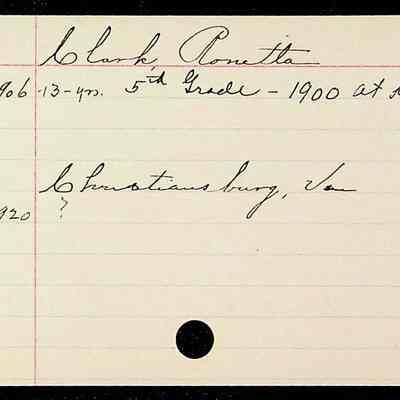 Clark, Ronetta
906 -13-yrs. 5th Grade - 1900 at
Christiansburg, Va
920 ?